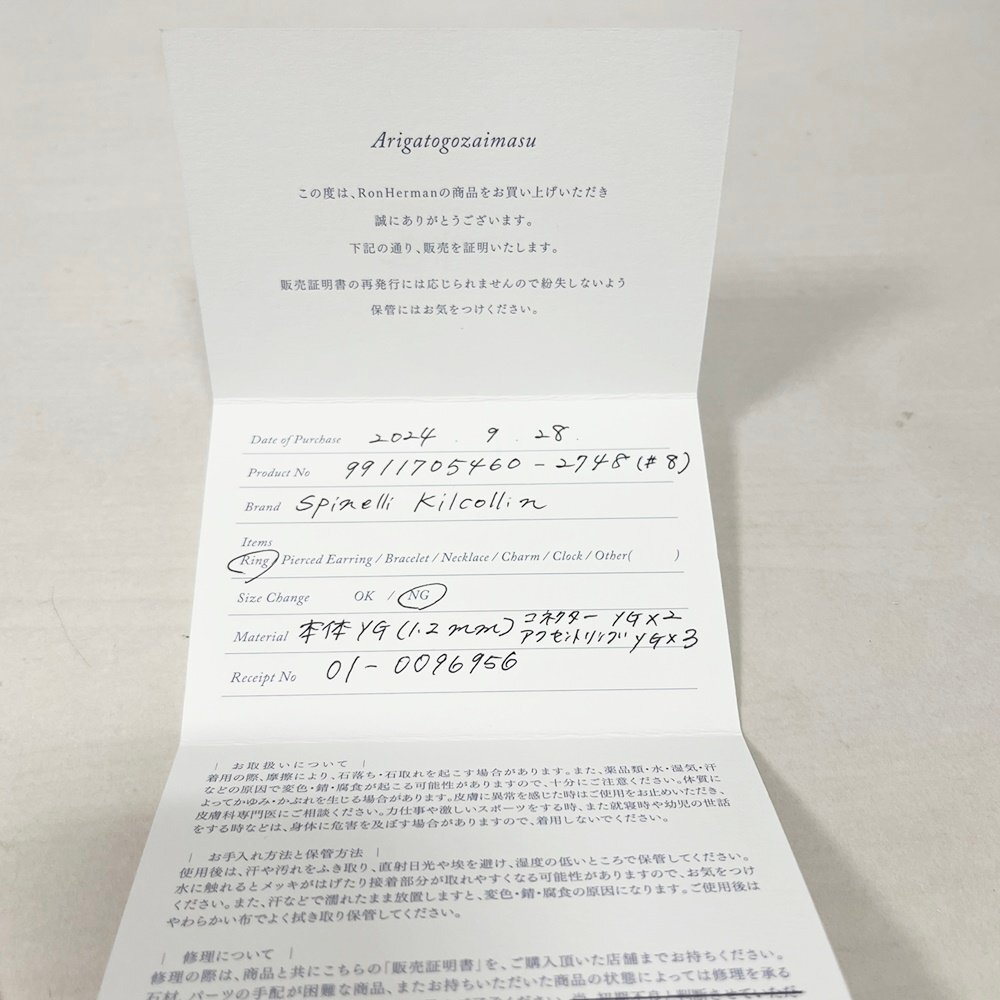 Arigatogozaimasu
この度は、RonHermanの商品をお買い上げいただき
誠にありがとうございます。
下記の通り、販売を証明いたします。
販売証明書の再発行には応じられませんので紛失しないよう
保管にはお気をつけください。
Date of Purchase 2024 . 9 . 28 .
Product No 9911705460 - 2748 (#8)
Brand Spinelli Kilcollin
Items
Ring / Pierced Earring / Bracelet / Necklace / Charm / Clock / Other( )
Size Change OK / NG
Material 本体 YG (1.2mm) コネクター YG×2
アクセントリング YG×3
Receipt No 01-0096956
| お取扱いについて |
着用の際、摩擦により、石落ち・石取れを起こす場合があります。また、薬品類・水・湿気・汗
などの原因で変色・錆・腐食が起こる可能性がありますので、十分にご注意ください。体質に
よってかゆみ・かぶれを生じる場合があります。皮膚に異常を感じた時はご使用をお止めいただき、
皮膚科専門医にご相談ください。力仕事や激しいスポーツをする時、また就寝時や幼児の世話
をする時などは、身体に危害を及ぼす場合がありますので、着用しないでください。
| お手入れ方法と保管方法 |
使用後は、汗や汚れをふき取り、直射日光や埃を避け、湿度の低いところで保管してください。
水に触れるとメッキがはげたり接着部分が取れやすくなる可能性がありますので、お気をつけ
ください。また、汗などで濡れたまま放置しますと、変色・錆・腐食の原因になります。ご使用後は
やわらかい布でよく拭き取り保管してください。
| 修理について |
修理の際は、商品と共にこちらの「販売証明書」を、ご購入頂いた店舗までお持ちください。
石材、パーツの手配が困難な商品、またお持ちいただいた商品の状態によっては修理を承る